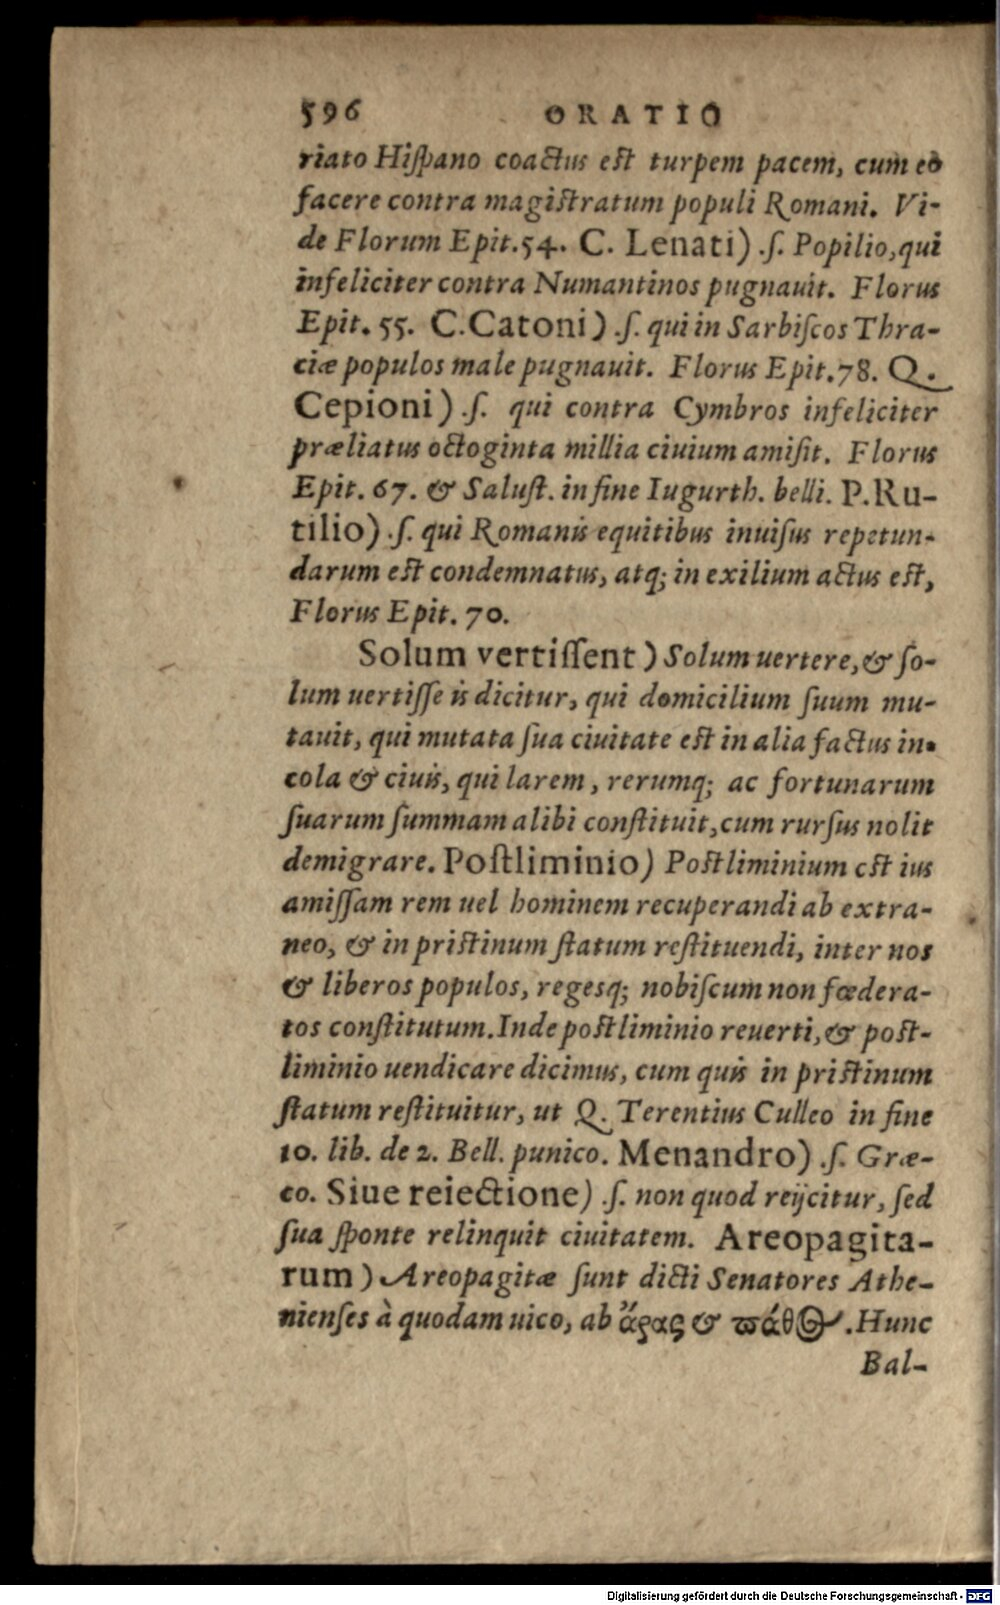 596 ORATIO
riato Hiſpano coactus eſt turpem pacem, cum eo
facere contra magiſtratum populi Romani. Vi-
de Florum Epit. 54. C. Lenati) .ſ. Popilio, qui
infeliciter contra Numantinos pugnauit. Florus
Epit. 55. C. Catoni) .ſ. qui in Sarbiſcos Thra-
ciæ populos male pugnauit. Florus Epit. 78. Q.
Cepioni) .ſ. qui contra Cymbros infeliciter
præliatus octoginta millia ciuium amiſit. Florus
Epit. 67. & Saluſt. in fine Iugurth. belli. P. Ru-
tilio) .ſ. qui Romanis equitibus inuiſus repetun-
darum eſt condemnatus, atq; in exilium actus eſt,
Florus Epit. 70.
Solum vertiſſent) Solum uertere, & ſo-
lum uertiſſe is dicitur, qui domicilium ſuum mu-
tauit, qui mutata ſua ciuitate eſt in alia factus in-
cola & ciuis, qui larem, rerumq; ac fortunarum
ſuarum ſummam alibi conſtituit, cum rurſus nolit
demigrare. Poſtliminio) Poſtliminium eſt ius
amiſſam rem uel hominem recuperandi ab extra-
neo, & in priſtinum ſtatum reſtituendi, inter nos
& liberos populos, regesq; nobiſcum non fœdera-
tos conſtitutum. Inde poſtliminio reuerti, & poſt-
liminio uendicare dicimus, cum quis in priſtinum
ſtatum reſtituitur, ut Q. Terentius Culleo in fine
10. lib. de 2. Bell. punico. Menandro) .ſ. Græ-
co. Siue reiectione) .ſ. non quod reijcitur, ſed
ſua ſponte relinquit ciuitatem. Areopagita-
rum) Areopagitæ ſunt dicti Senatores Athe-
nienſes à quodam uico, ab ἄρας & πάθος. Hunc
Bal-
Digitalisierung gefördert durch die Deutsche Forschungsgemeinschaft - DFG